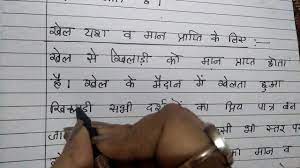 खेल यश व मान प्राप्ति के लिए :—
खेल से खिलाड़ी को मान प्राप्त होता
है। खेल के मैदान में खेलता हुआ
खिलाड़ी सभी दर्शकों का प्रिय पात्र बन
जा सभी भी स्तर पर